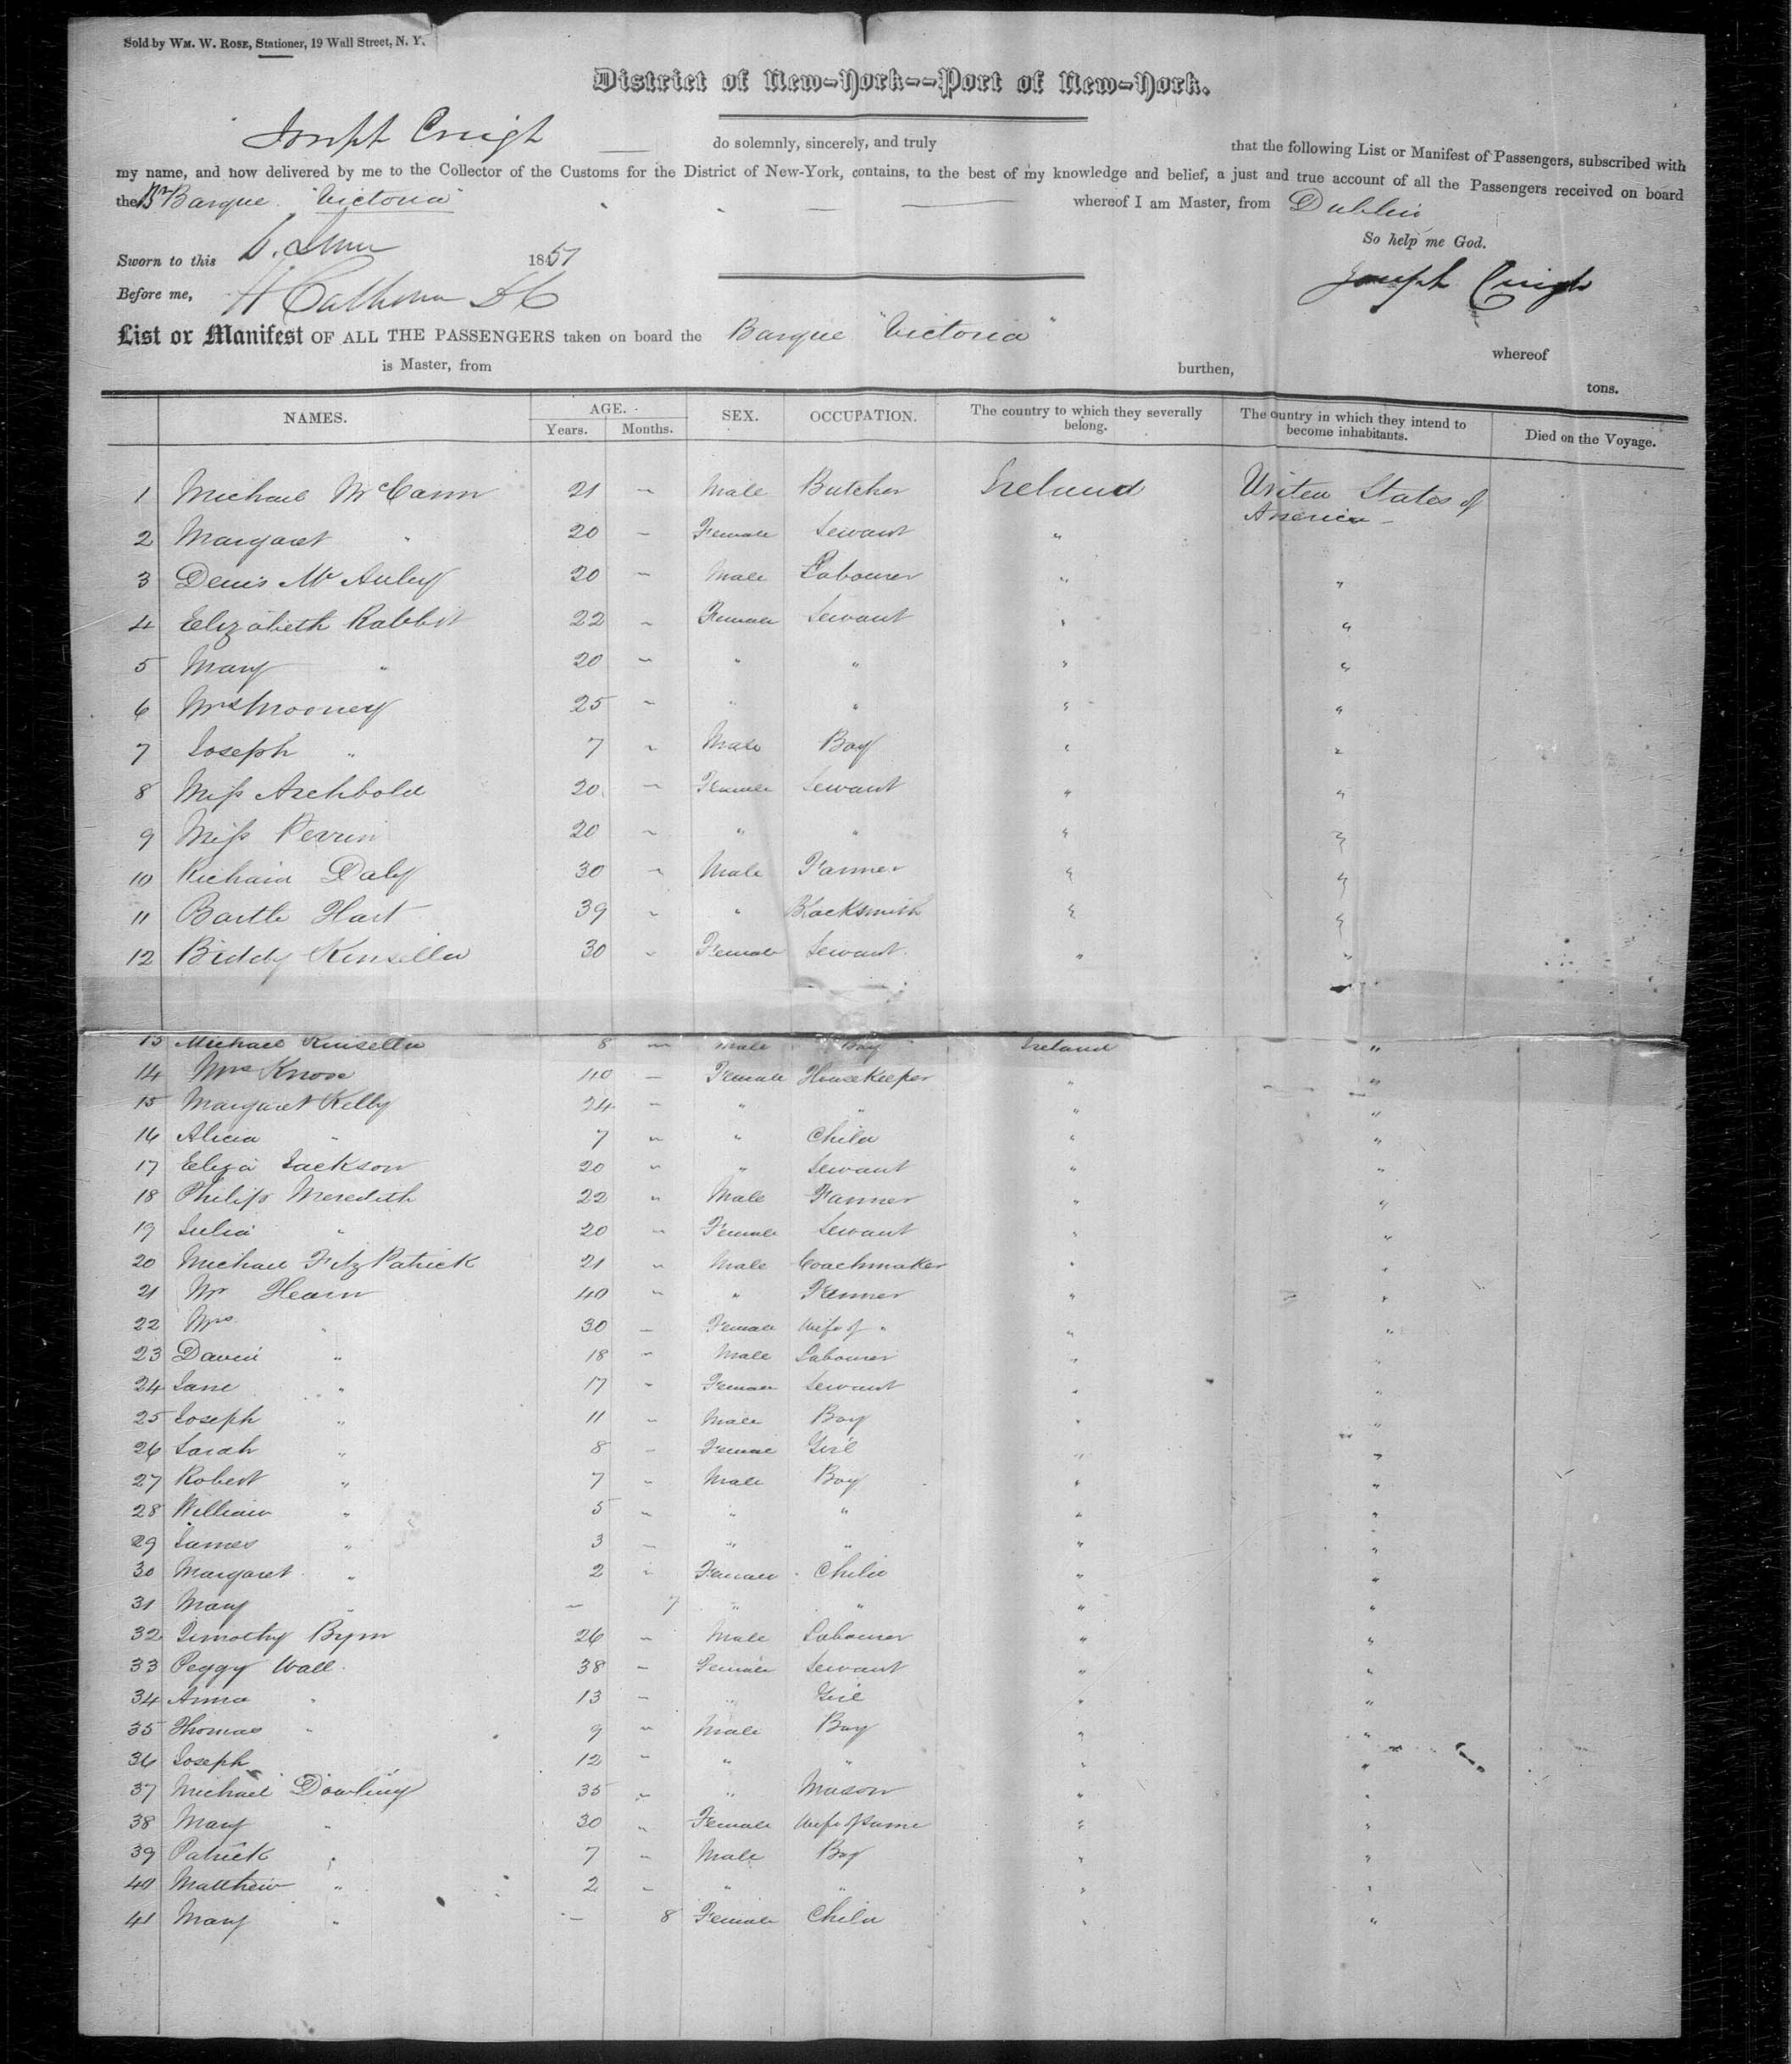 Sold by WM. W. ROSE, Stationer, 19 Wall Street, N. Y.
District of New-York--Port of New-York.
Joseph do solemnly, sincerely, and truly that the following List or Manifest of Passengers, subscribed with
my name, and now delivered by me to the Collector of the Customs for the District of New-York, contains, to the best of my knowledge and belief, a just and true account of all the Passengers received on board
the Br Barque "Victoria" whereof I am Master, from Dublin
So help me God.
Sworn to this 6. June 1851
Joseph
Before me, H Calhoun D C
List or Manifest OF ALL THE PASSENGERS taken on board the Barque "Victoria" whereof
is Master, from burthen, tons.
NAMES. AGE. Years. Months. SEX. OCCUPATION. The country to which they severally belong. The country in which they intend to become inhabitants. Died on the Voyage.
1 Michael McCann 21 " Male Butcher Ireland United States of America -
2 Margaret " 20 " Female Servant "
3 Denis Mc Auley 20 " Male Labourer " "
4 Elizabeth Rabbit 22 " Female Servant " "
5 Mary " 20 " " " " "
6 Mrs Mooney 25 " " " " "
7 Joseph " 7 " Male Boy " "
8 Miss Archbold 20 " Female Servant " "
9 Miss Perrin 20 " " " " "
10 Richard Daly 30 " Male Farmer " "
11 Bartle Hart 39 " " Blacksmith " "
12 Biddy Kinsella 30 " Female Servant " "
13 Michael Kinsella 8 " Male Boy Ireland "
14 Mrs 40 " Female HouseKeeper " "
15 Margaret Kelly 24 " " " " "
16 Alicia " 7 " " Child " "
17 Eliza Jackson 20 " " Servant " "
18 Philip Meredith 22 " Male Farmer " "
19 Julia " 20 " Female Servant " "
20 Michael FitzPatrick 21 " Male Coachmaker " "
21 Mr Hearn 40 " " Farmer " "
22 Mrs " 30 " Female Wife of " " "
23 David " 18 " Male Labourer " "
24 Jane " 17 " Female Servant " "
25 Joseph " 11 " Male Boy " "
26 Sarah " 8 " Female Girl " "
27 Robert " 7 " Male Boy " "
28 William " 5 " " " " "
29 James " 3 " " " " "
30 Margaret " 2 " Female Child " "
31 Mary " - 7 " " " "
32 Timothy Byrn 26 " Male Labourer " "
33 Peggy Wall 38 " Female Servant " "
34 Anna " 13 " " Girl " "
35 Thomas " 9 " Male Boy " "
36 Joseph " 12 " " " " "
37 Michael Dowling 35 " " Mason " "
38 Mary " 30 " Female Wife of same " "
39 Patrick " 7 " Male Boy " "
40 Matthew " 2 " " " " "
41 Mary " - 8 Female Child " "